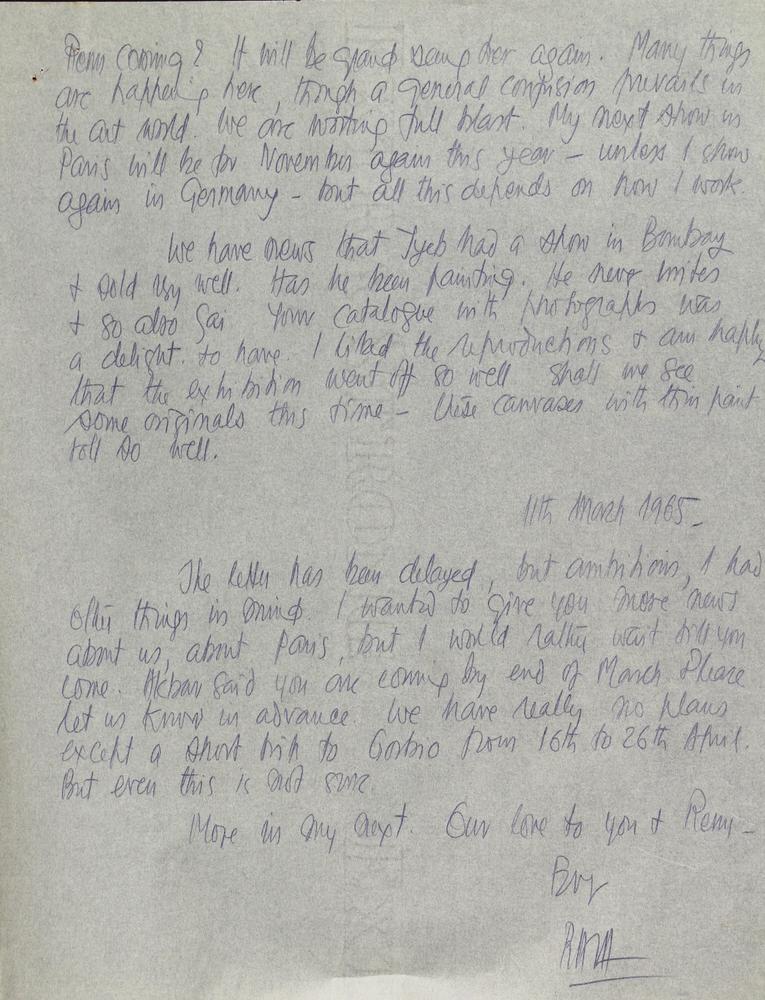 Renu coming? It will be grand seeing her again. Many things
are happening here, though a general confusion prevails in
the art world. We are working full blast. My next show in
Paris will be for November again this year – unless I show
again in Germany – but all this depends on how I work.
We have news that Tyeb had a show in Bombay
& sold very well. Has he been painting. He never writes
& so also Gai Your catalogue with photographs was
a delight. to have. I liked the reproductions & am happy
that the exhibition went off so well Shall we see
some originals this time – these canvases with thin paint
told so well.
11th March 1965_
The letter has been delayed, but ambitions, I had
other things in mind. I wanted to give you more news
about us, about Paris, but I would rather wait till you
come. Akbar said you are coming by end of March Please
let us know in advance. We have really no plans
except a short trip to Gorbio from 16th to 26th April.
But even this is not sure.
More in my next. Our love to you & Renu –
RAZA